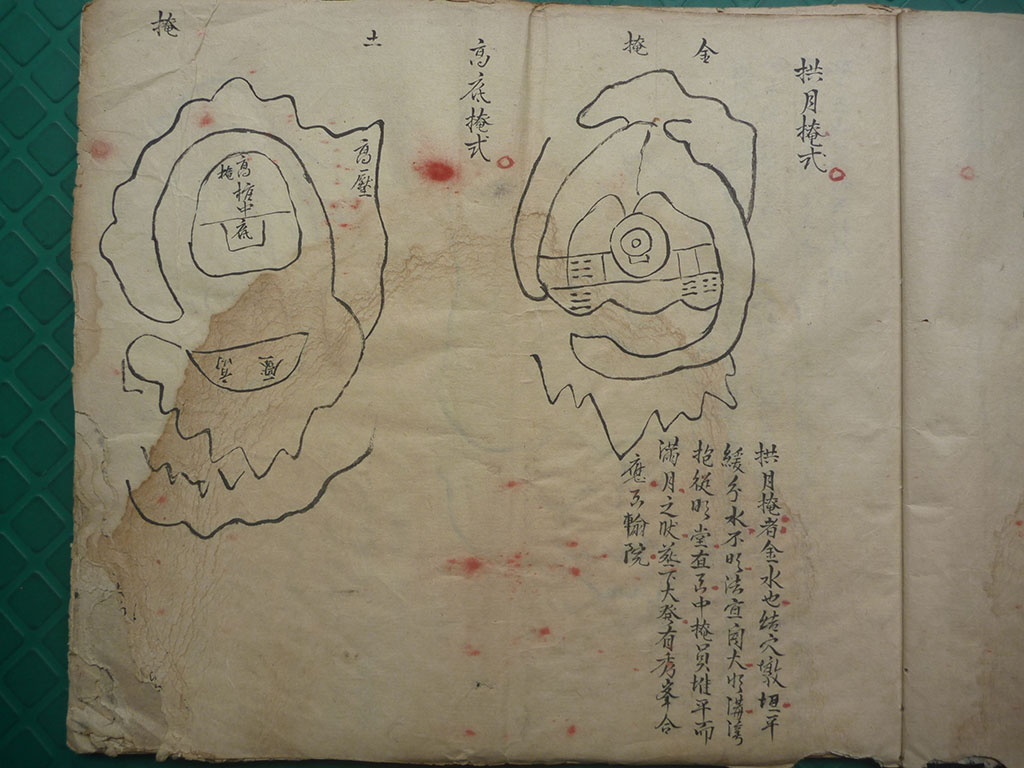 拱月掩式
金
掩
拱月掩者金水也结穴墩坦平
緩分水不明法宜開大明溝灣
抱從明堂直下中掩員堆平而
满月之狀葬下大發有秀峯合
應下翰院
高底掩式
土
掩
高壓
高擴中底
掩
高壓